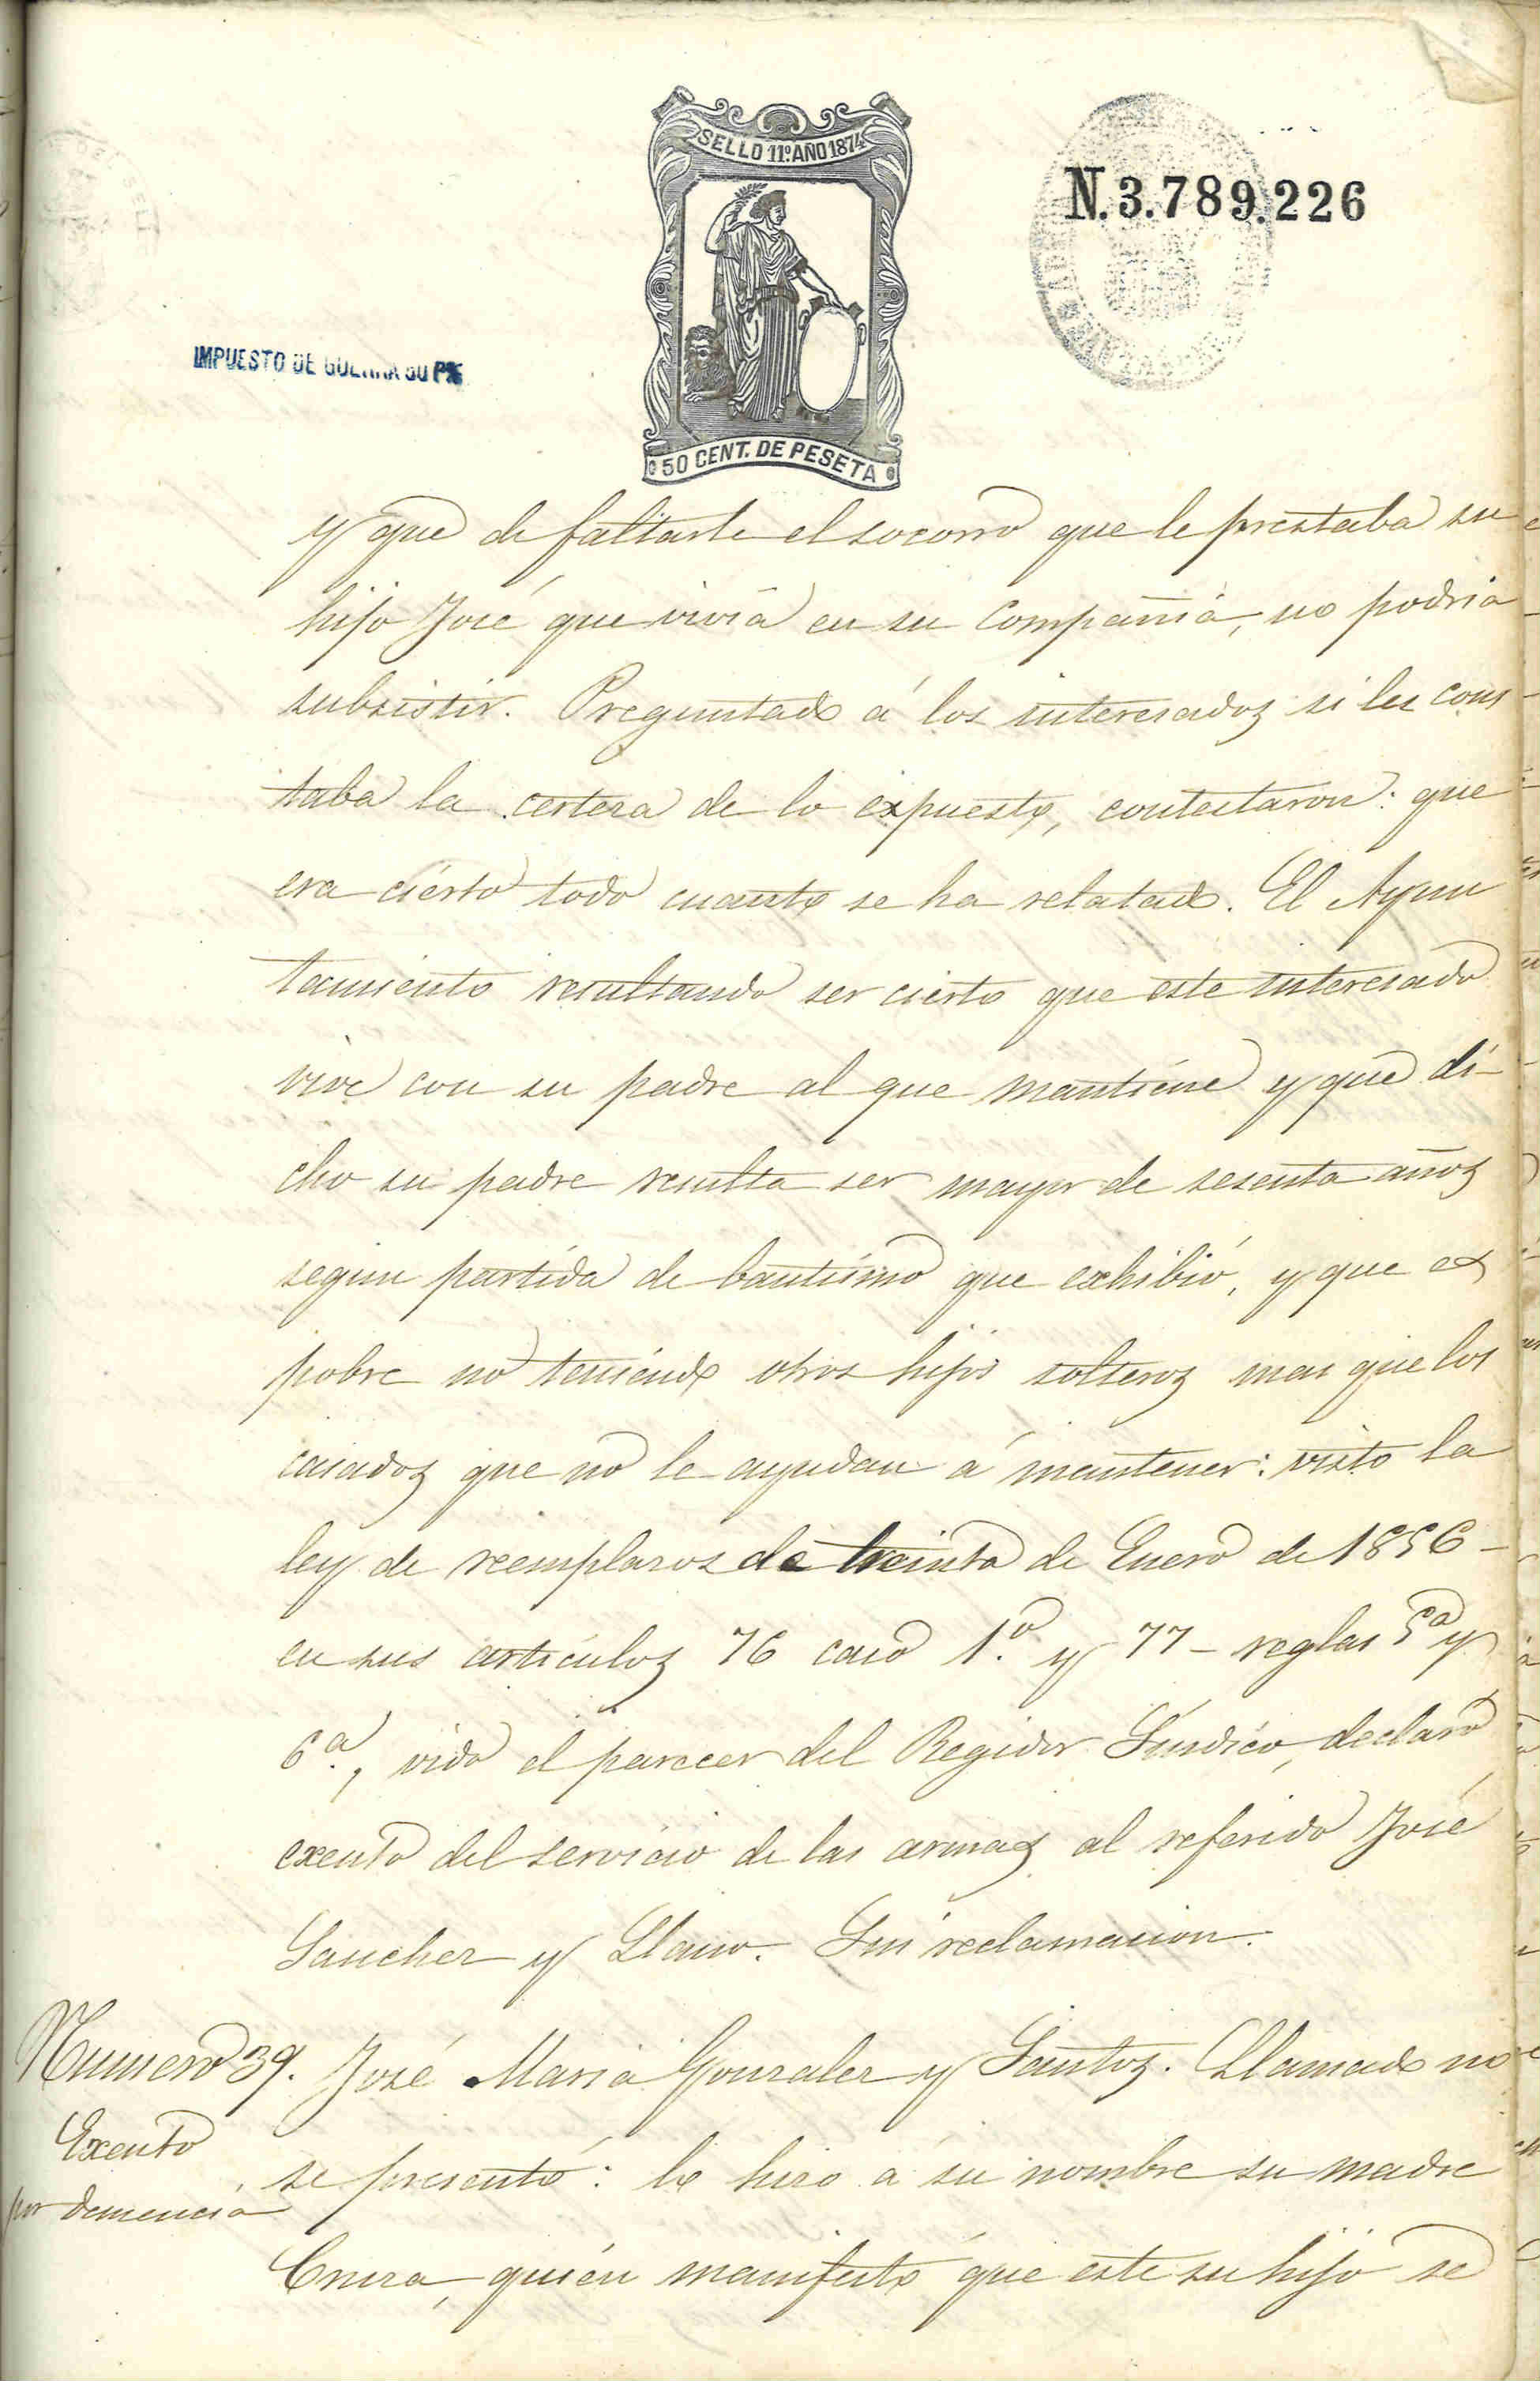 SELLO 11º AÑO 1874
N. 3.789.226
IMPUESTO DE GUERRA 50
50 CENT. DE PESETA
y que de faltarle el socorro que le prestaba su
hijo José que vivia en su compañia, no podria
subsistir. Preguntado á los interesados si les cons
taba la certeza de lo expuesto, contestaron: que
era cierto todo cuanto se ha relatado. El Ayun
tamiento resultando ser cierto que este interesado
vive con su padre al que mantiene y que di-
cho su padre resulta ser mayor de sesenta años
segun partida de bautismo que exhibió, y que es
pobre no teniendo otros hijos solteros mas que los
casados que no le ayudan á mantener: visto la
ley de reemplazos de treinta de Enero de 1856-
en sus artículos 76 caso 1.º y 77- reglas 5ª y
6.ª, oido el parecer del Regidor Síndico, declaró
exento del servicio de las armas al referido José
Sanchez y Llano. Sin reclamacion.
Numero 39. José Maria Gonzalez y Santos. Llamado no
Exento
por demencia
se presentó: lo hizo á su nombre su madre
quién manifestó que este su hijo se